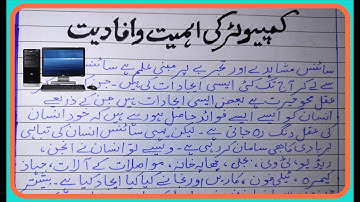 کمپیوٹر کی اہمیت و افادیت
سائنس مشاہدے اور تجربے پر مبنی علم ہے سائنس
سے لے کر آج تک کئی ایسی ایجادات کی ہیں۔ جن
عقل محو حیرت ہے بعض ایسی ایجادات ہیں جن کے ذریعے
انسان کو ایسے ایسے فوائد حاصل ہو رہے ہیں کہ خود انسان
کی عقل دنگ رہ جاتی ہے۔ لیکن یہی سائنس انسان کی تباہی
بربادی کا بھی سامان کر رہی ہے۔ ویسے تو انسان نے انجن،
ریڈیو، ٹی وی، بجلی، چھاپہ خانہ، مواصلات کے آلات، جہاز
کیمرہ، ٹیلی فون، کاریں اور نجانے کیا کیا ایجاد کیا ہے۔ بیشتر